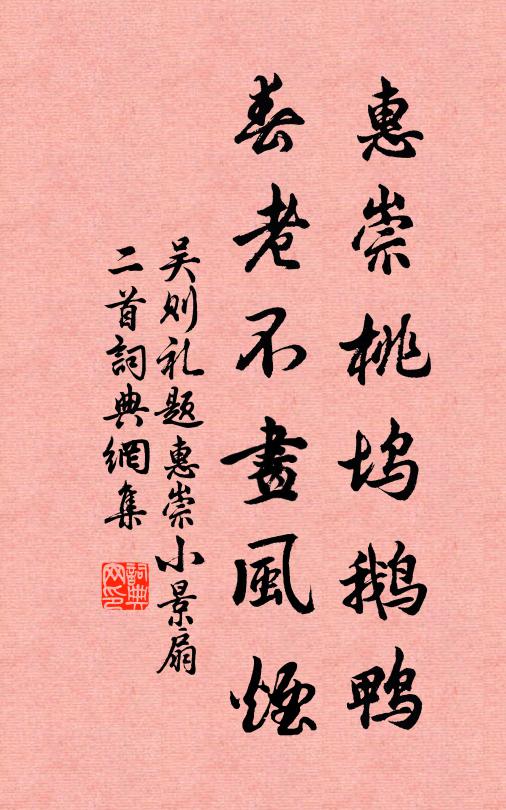 惠崇桃坞鹅鸭
春老不畫風煙
吴则礼题惠崇小景扇
二首詞典網集
詞典
网印